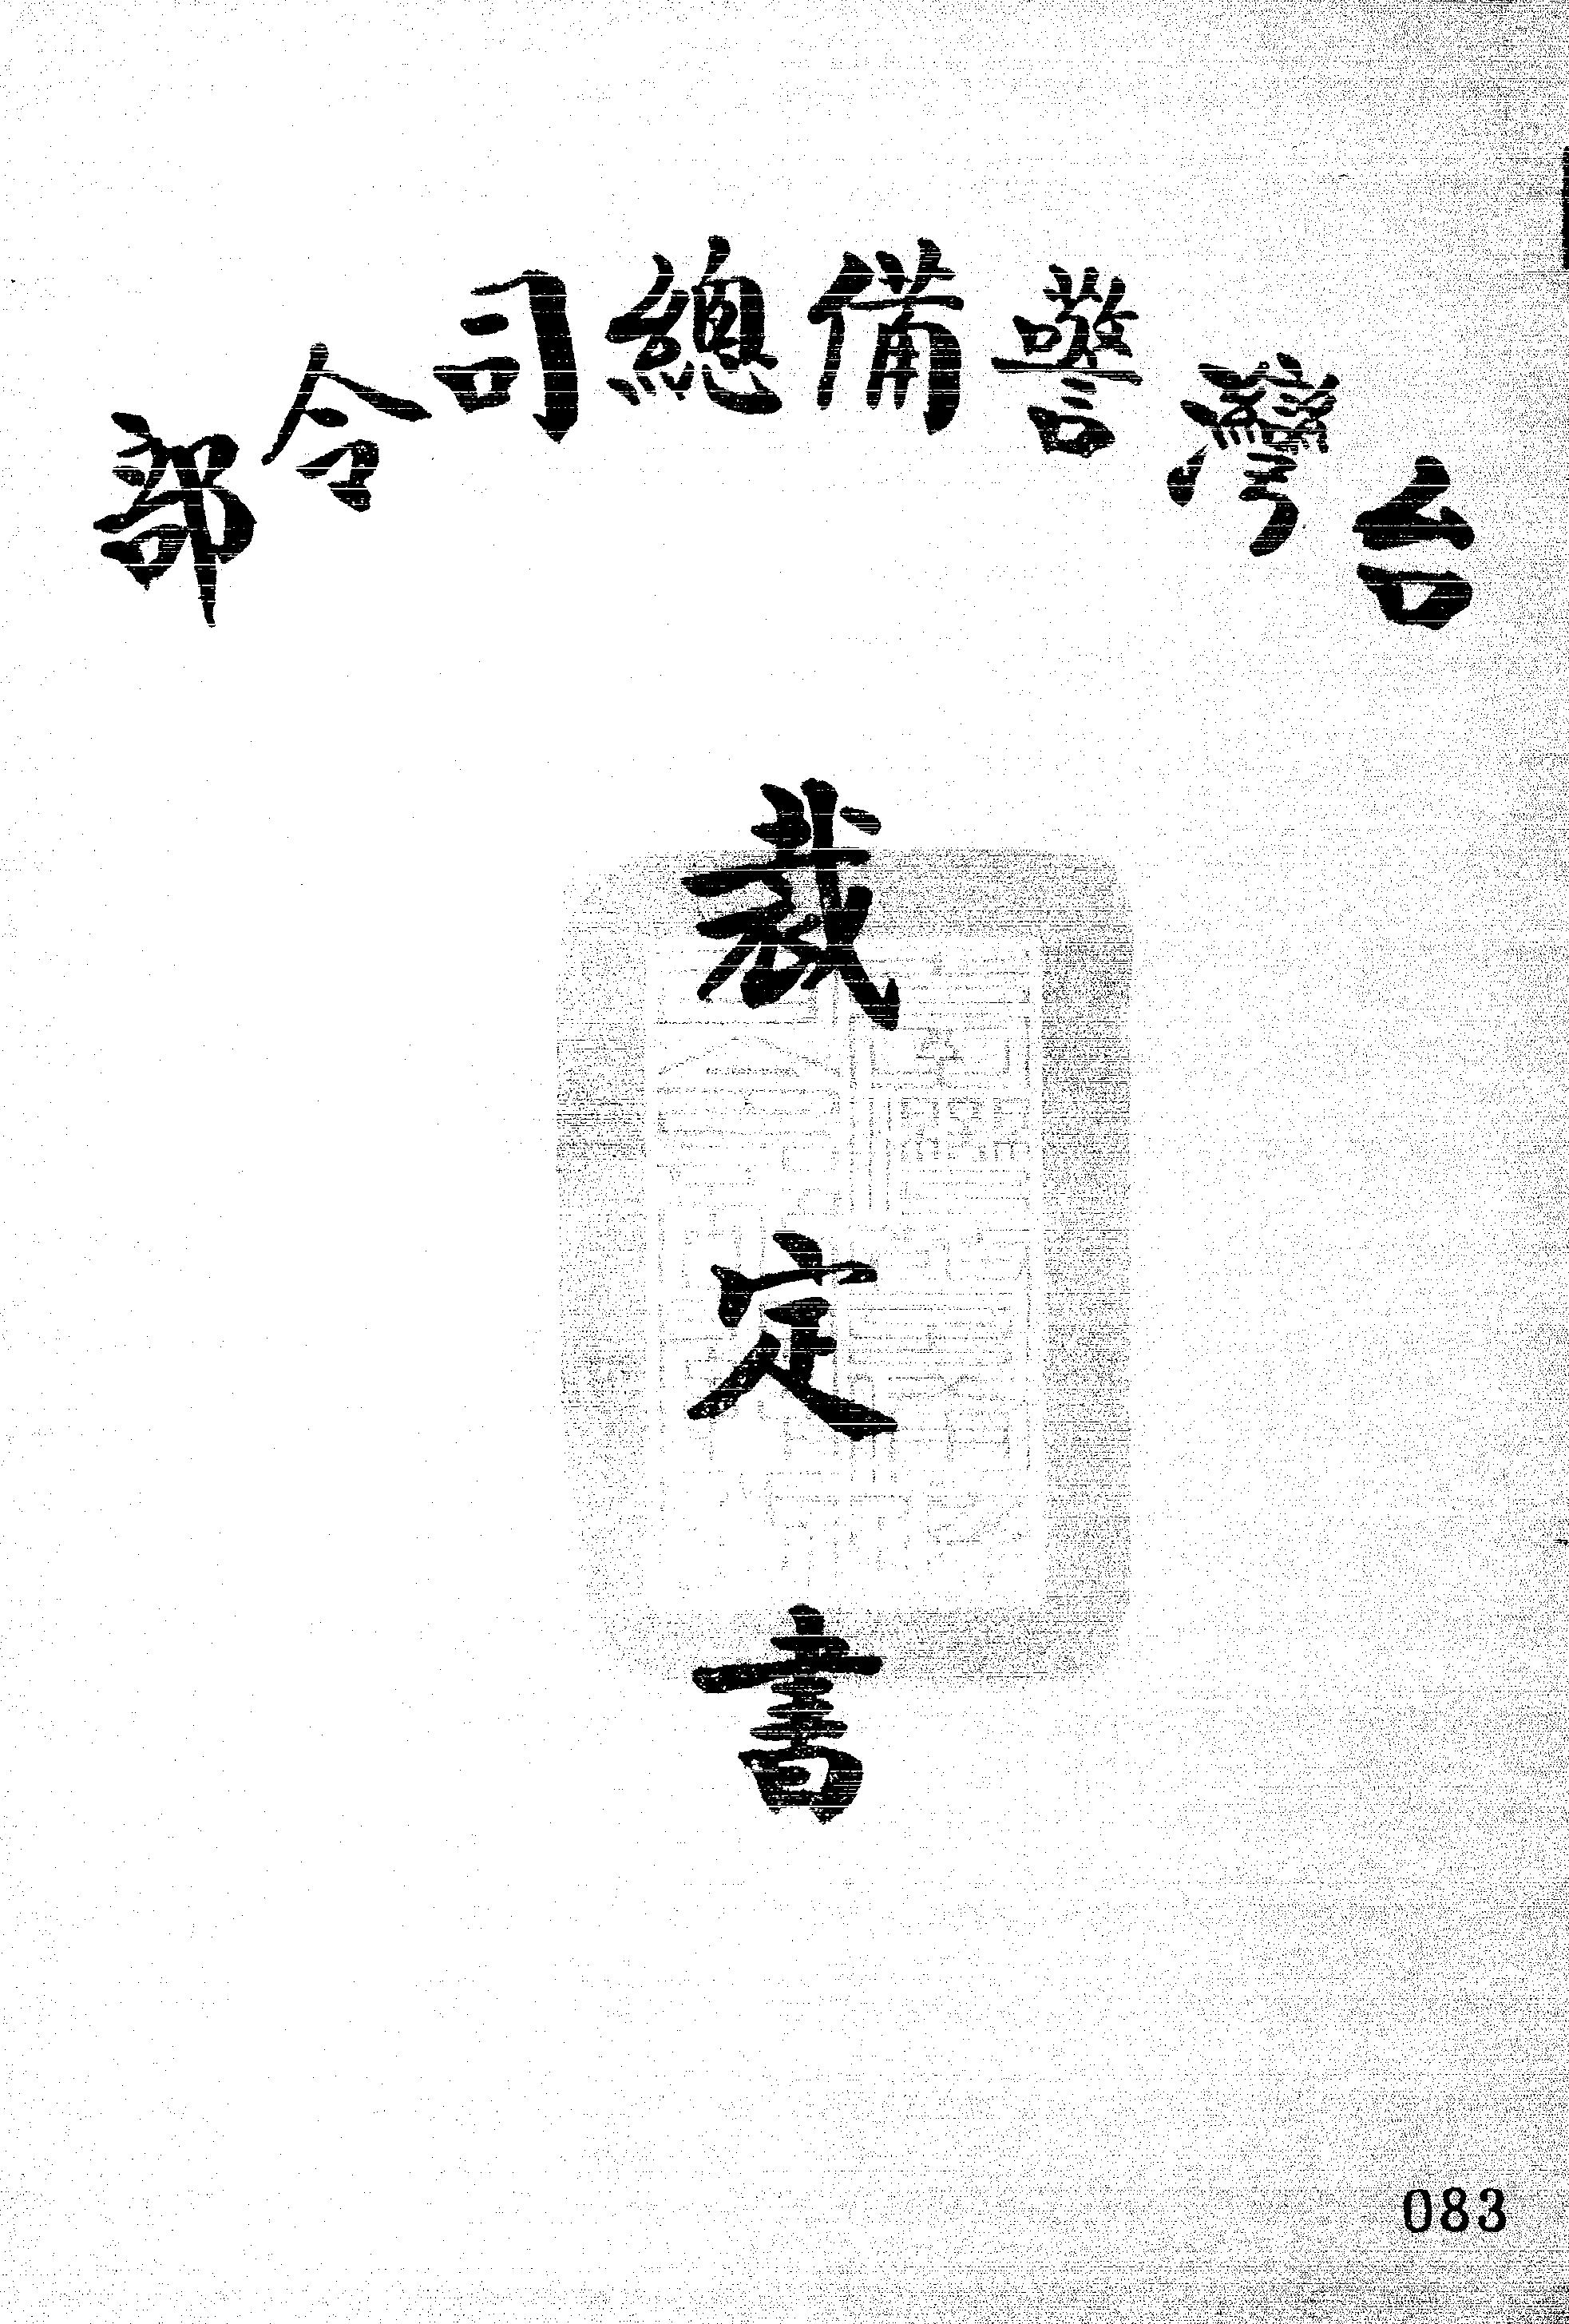 台灣警備總司令部
裁定書
083